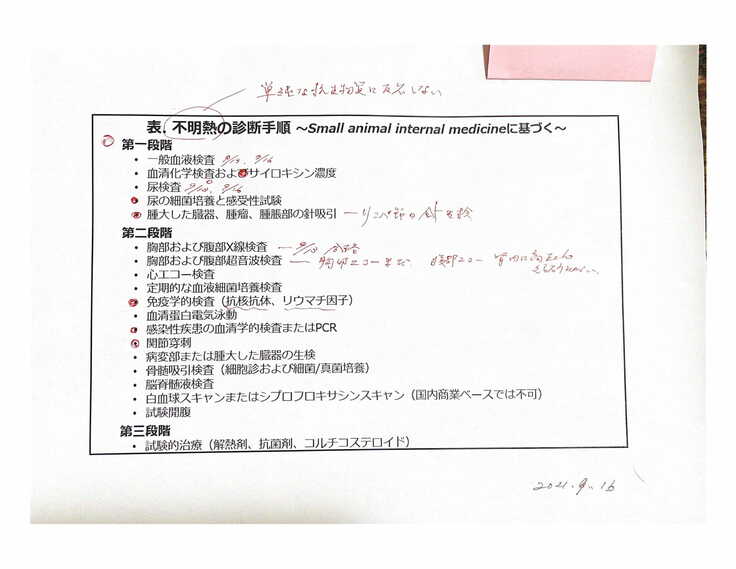 単純な抗生物質に反応しない
表. 不明熱の診断手順 ～Small animal internal medicineに基づく～
第一段階
・ 一般血液検査 9/10. 9/16
・ 血液化学検査およびサイロキシン濃度
・ 尿検査 9/10. 9/16
・ 尿の細菌培養と感受性試験
・ 腫大した臓器、腫瘤、腫脹部の針吸引 ーリンパ節の針生検
第二段階
・ 胸部および腹部X線検査
・ 胸部および腹部超音波検査 ー 胸部エコーまだ 腹部エコー
・ 心エコー検査
・ 定期的な血液細菌培養検査
・ 免疫学的検査（抗核抗体、リウマチ因子）
・ 血清蛋白電気泳動
・ 感染性疾患の血清学的検査またはPCR
・ 関節穿刺
・ 病変部または腫大した臓器の生検
・ 骨髄吸引検査（細胞診および細菌/真菌培養）
・ 脳脊髄液検査
・ 白血球スキャンまたはシプロフロキサシンスキャン（国内商業ベースでは不可）
・ 試験開腹
第三段階
・ 試験的治療（解熱剤、抗菌剤、コルチコステロイド）
2021.9.16